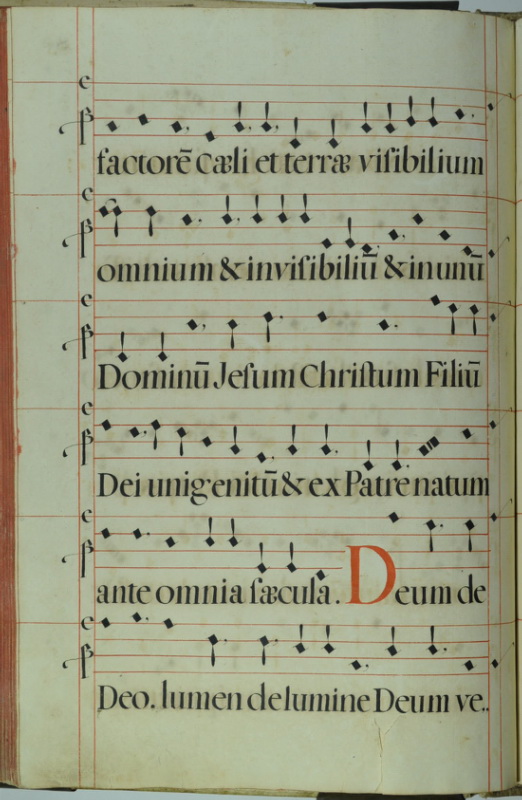 factorē Cæli et terræ viſibilium
omnium & inviſibiliū & in unū
Dominū Jeſum Chriſtum Filiū
Dei unigenitū & ex Patre natum
ante omnia ſæcula. Deum de
Deo. lumen de lumine Deum ve..